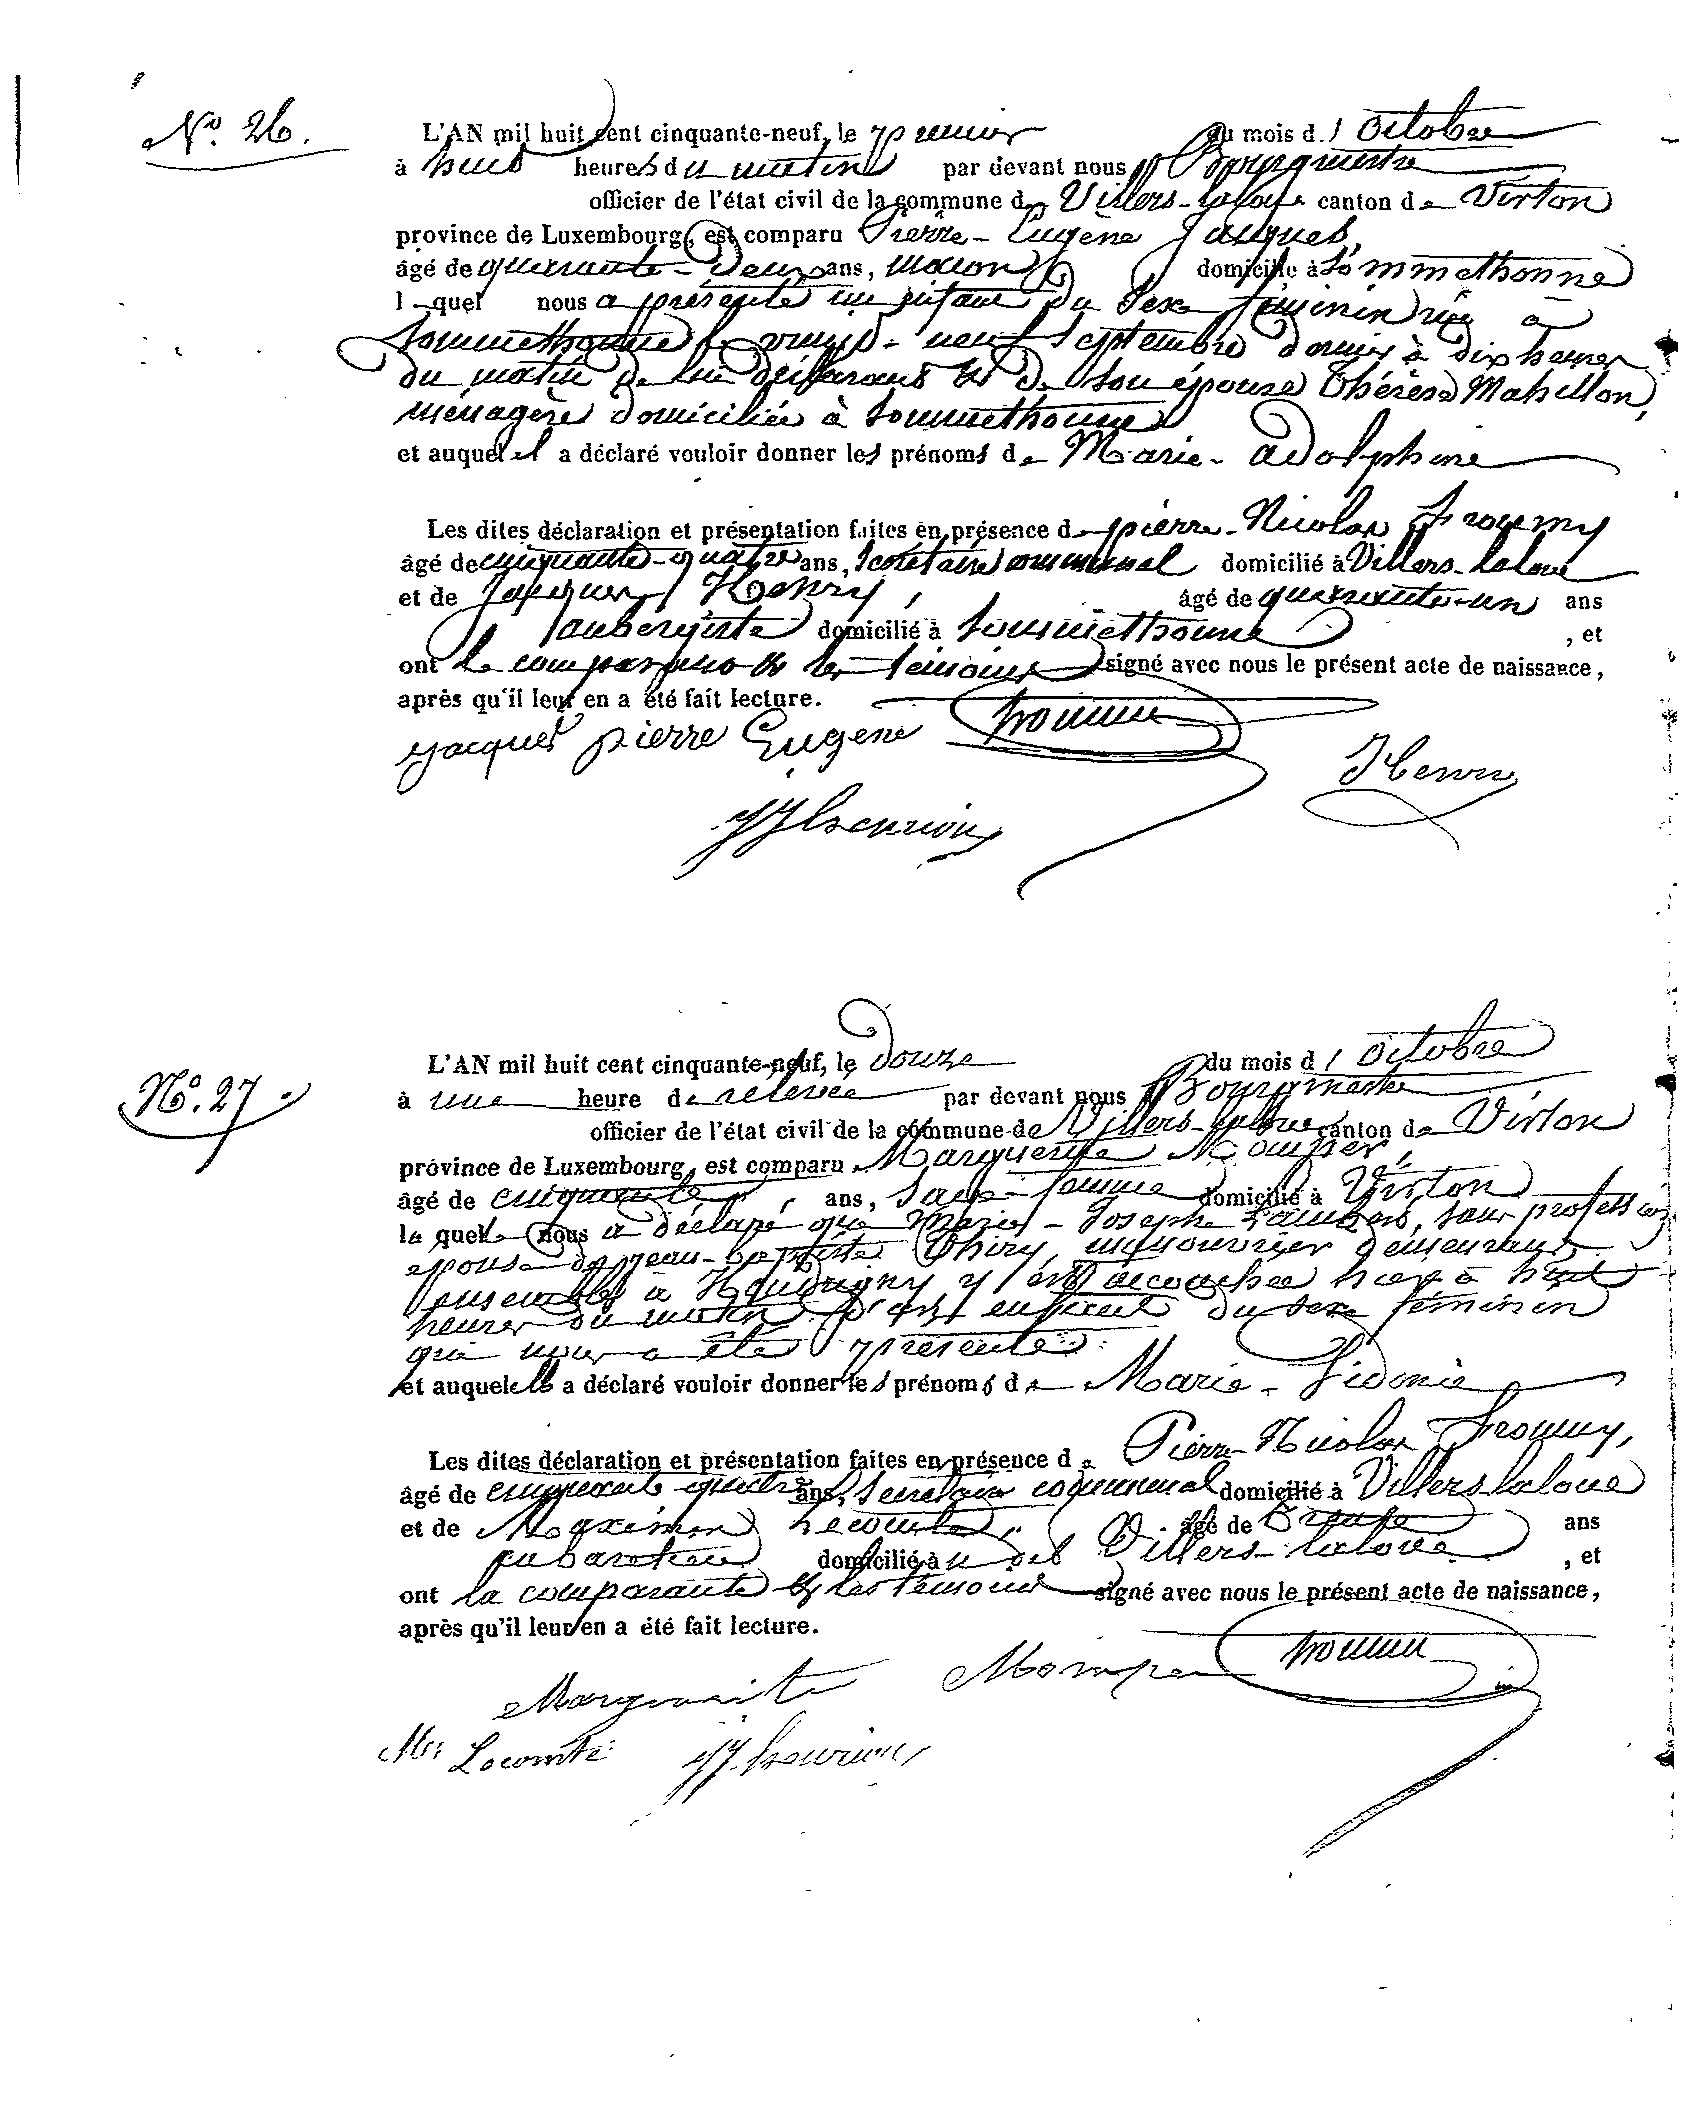 N.º 26.
L'AN mil huit cent cinquante-neuf, le premier du mois d'Octobre
à huit heures du matin par devant nous Bourgmestre
officier de l'état civil de la commune de Villers-laloue canton de Virton
province de Luxembourg, est comparu Pierre-Eugène Jacques,
âgé de quarante-deux ans, maçon domicilié à Sommethonne
lequel nous a présenté un enfant du sexe féminin née à
Sommethonne le vingt-neuf Septembre dernier à dix heures
du matin de lui déclarant et de son épouse Thérèse Mahillon,
ménagère domiciliée à Sommethonne
et auquel il a déclaré vouloir donner les prénoms de Marie-Adolphine
Les dites déclaration et présentation faites en présence de pierre-Nicolas Froumy
âgé de cinquante-quatre ans, Secrétaire communal domicilié à Villers-laloue
et de Jacques Henry, âgé de quarante-un ans
aubergiste domicilié à Sommethonne , et
ont le comparant et les témoins signé avec nous le présent acte de naissance,
après qu'il leur en a été fait lecture.
jacques pierre Eugene
Henry
N.º 27.
L'AN mil huit cent cinquante-neuf, le douze du mois d'Octobre
à une heure de relevée par devant nous Bourgmestre
officier de l'état civil de la commune de Villers-laloue canton de Virton
province de Luxembourg, est comparu Marguerite
âgé de cinquante, ans, Sage-femme domicilié à Virton
laquelle nous a déclaré que Marie-Josephe Lambert, sans profession
épouse de jean-baptiste Thiry, manouvrier demeurant
ensemble à Houdrigny y est accouchée hier à huit
heures du matin d'un enfant du sexe féminin
qui nous a été présenté
et auquel elle a déclaré vouloir donner les prénoms de Marie-Sidonie
Les dites déclaration et présentation faites en présence de Pierre-Nicolas Froumy,
âgé de cinquante-quatre ans, Secrétaire communal domicilié à Villers-laloue
et de Maximin Lecomte, âgé de Trente ans
cabaretier domicilié à u dit Villers-laloue , et
ont la comparante et les témoins signé avec nous le présent acte de naissance,
après qu'il leur en a été fait lecture.
Marguerite
Lecomte